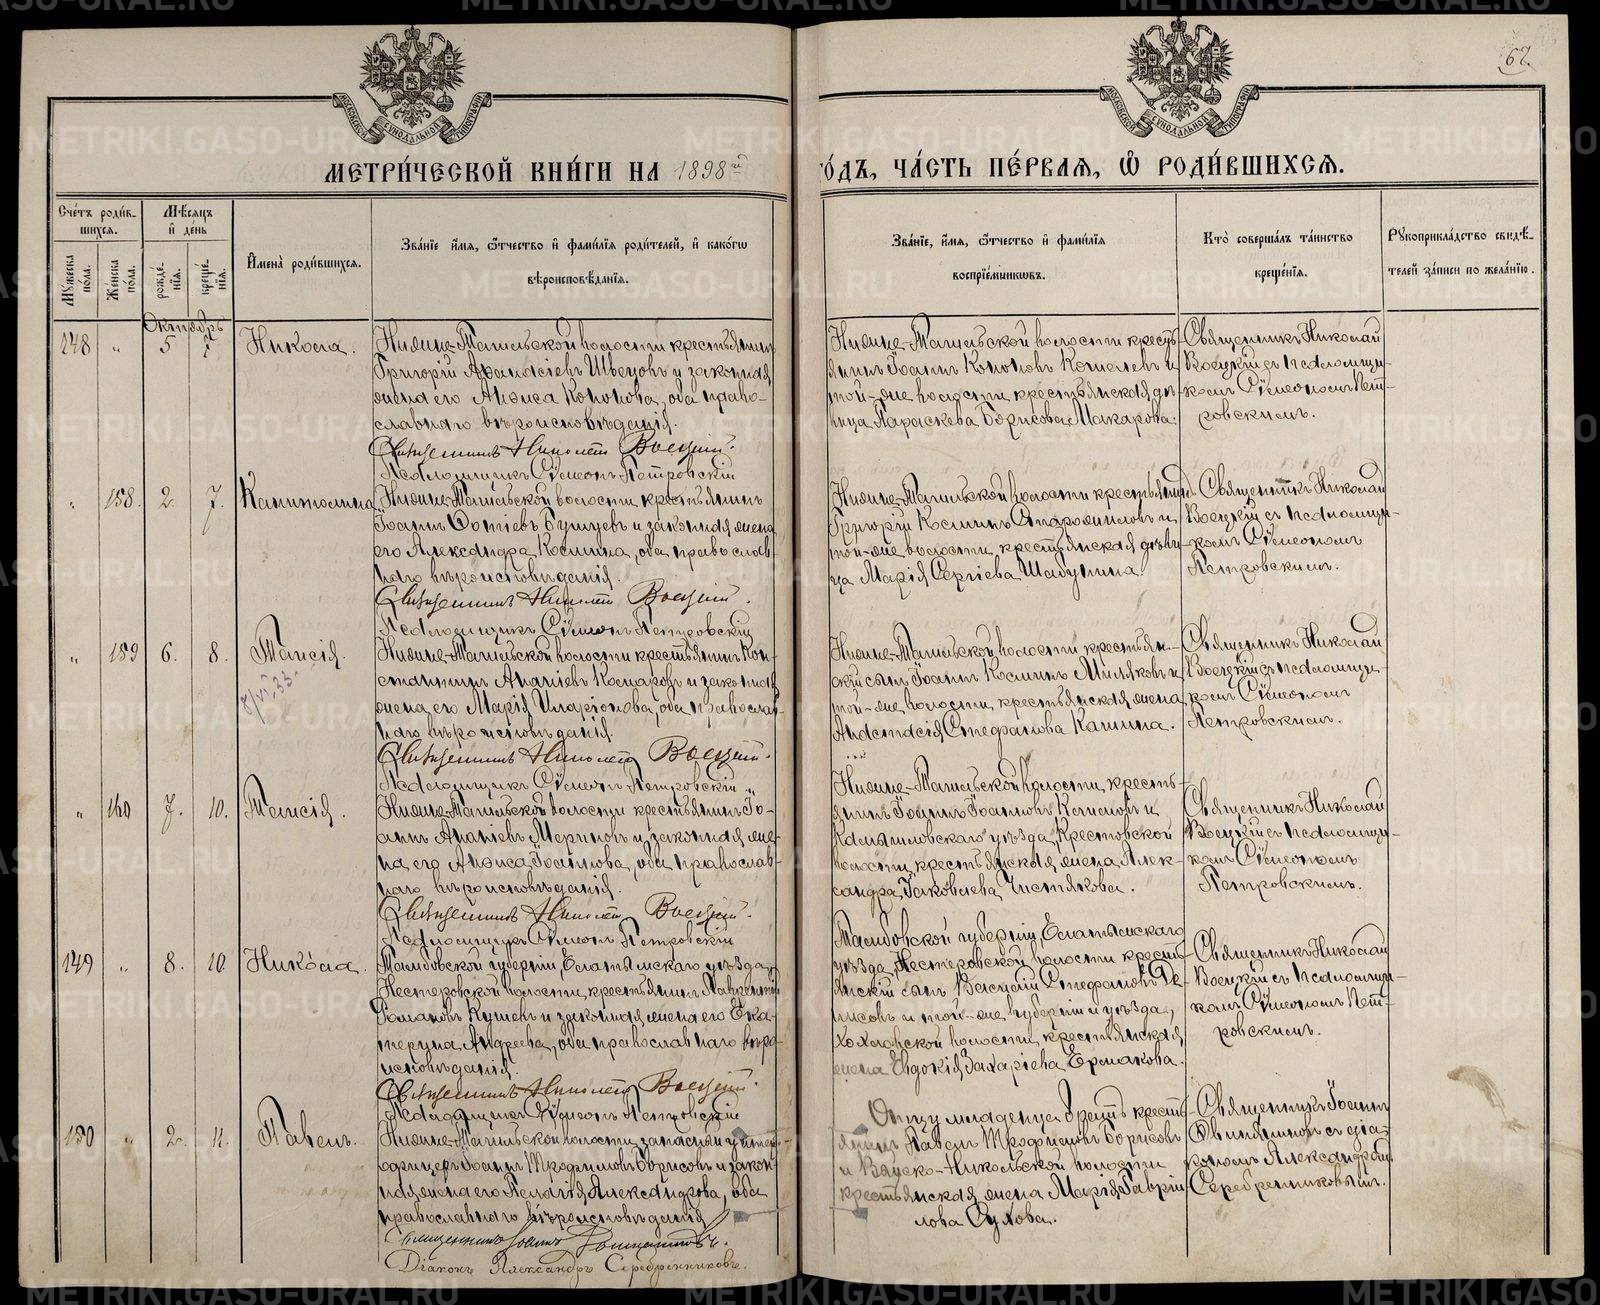 62.
МОСКОВСКОЙ СѴНОДАЛЬНОЙ ТИПОГРАФІИ
МОСКОВСКОЙ СѴНОДАЛЬНОЙ ТИПОГРАФІИ
МЕТРИ́ЧЕСКОЙ КНИ́ГИ НА 1898й
ГО́ДЪ, ЧА́СТЬ ПЕ́РВАЯ, Ѡ РОДИ́ВШИХСЯ.
Сче́тъ роди́в-
шихся.
Мꙋжеска по́ла.
Же́нска по́ла.
Мѣ́сяцъ и де́нь
рожде́-нія.
креще́-нія.
Имена̀ роди́вшихся.
Зва́ніе и́мя, ѻ́тчество и фами́лія роди́телей, и како́гѡ
вѣроисповѣ́данія.
Зва́ніе, и́мя, ѻ́тчество и фами́лія
воспрiе́мникѡвъ.
Кто̀ соверша́лъ та́инство
креще́нія.
Рꙋкоприкла́дство свидѣ́-
телей за́писи по жела́нію.
Октябрь
148 „ 5 7 Никола.
Нижне-Тагильской волости крестьянинъ
Григорій Аѳанасіевъ Швецовъ и законная
жена его Анѳиса Кононова, оба право-
славнаго вѣроисповѣданія.
Священникъ Николай Воецкій.
Псаломщикъ Сѵмеонъ Петровскій
Нижне-Тагильской волости кресть-
янинъ Іоаннъ Кононовъ и
той-же волости крестьянская дѣ-
вица Параскева Борисова Макарова.
Священникъ Николай
Воецкій съ псаломщи-
комъ Сѵмеономъ Пет-
ровскимъ.
„ 158. 2. 7. Капитолина
Нижне-Тагильской волости крестьянинъ
Іоаннъ и законная жена
его Александра Космина, оба православ-
наго вѣроисповѣданія.
Священникъ Николай Воецкій.
Псаломщикъ Сѵмеонъ Петровскій
Нижне-Тагильской волости крестьянинъ
Григорій Косминъ и
той-же волости крестьянская дѣви-
ца Марія Сергіева Шабунина.
Священникъ Николай
Воецкій съ псаломщи-
комъ Сѵмеономъ
Петровскимъ.
„ 159 6. 8. Таисія.
Нижне-Тагильской волости крестьянинъ Кон-
стантинъ Ананіевъ и законная
жена его Марія Иларіонова, оба православ-
наго вѣроисповѣданія.
Священникъ Николай Воецкій.
Псаломщикъ Сѵмеонъ Петровскій
Нижне-Тагильской волости крестьян-
скій сынъ Іоаннъ Косминъ Миляковъ и
той-же волости крестьянская жена
Анастасія Стефанова Капина.
Священникъ Николай
Воецкій съ псаломщи-
комъ Сѵмеономъ
Петровскимъ.
„ 160 7. 10. Таисія.
Нижне-Тагильской волости крестьянинъ Іо-
аннъ Ананіевъ и законная же-
на его Анѳиса, оба православ-
наго вѣроисповѣданія.
Священникъ Николай Воецкій.
Псаломщикъ Сѵмеонъ Петровскій
Нижне-Тагильской волости кресть-
янинъ Іоаннъ Іоанновъ и
Камышловскаго уѣзда, Крестовской
волости крестьянская жена Алек-
сандра Іаковлева Чистякова.
Священникъ Николай
Воецкій съ псаломщи-
комъ Сѵмеономъ
Петровскимъ.
149 „ 8. 10 Никола.
Тамбовской губерніи, Елатьмскаго уѣзда,
Нестеровской волости, крестьянинъ Лаврентій
Романовъ и законная жена его Ека-
терина Андреева, оба православнаго вѣро-
исповѣданія.
Священникъ Николай Воецкій.
Псаломщикъ Сѵмеонъ Петровскій
Тамбовской губерніи, Елатьмскаго
уѣзда, Нестеровской волости кресть-
янскій сынъ Василій Стефановъ Де-
нисовъ и той-же губерніи и уѣзда,
волости, крестьянская
жена Евдокія Захаріева Ермакова.
Священникъ Николай
Воецкій съ псаломщи-
комъ Сѵмеономъ Пет-
ровскимъ.
150 „ 2. 11. Павелъ.
Нижне-Тагильской волости, запасный унтеръ-
офицеръ Іоаннъ Трофимовъ Борисовъ и закон-
ная жена его Пелагія Александрова, оба
православнаго вѣроисповѣданія
Священникъ Іоаннъ
Діаконъ Александръ Серебренниковъ.
Отцу младенца братъ кресть-
янинъ Павелъ Трофимовъ Борисовъ
и Николької волости
крестьянская жена Марія Гаврі-
лова Сухова.
Священникъ Іоаннъ
съ діа-
кономъ Александромъ
Серебренниковымъ.
METRIKI.GASO-URAL.RU